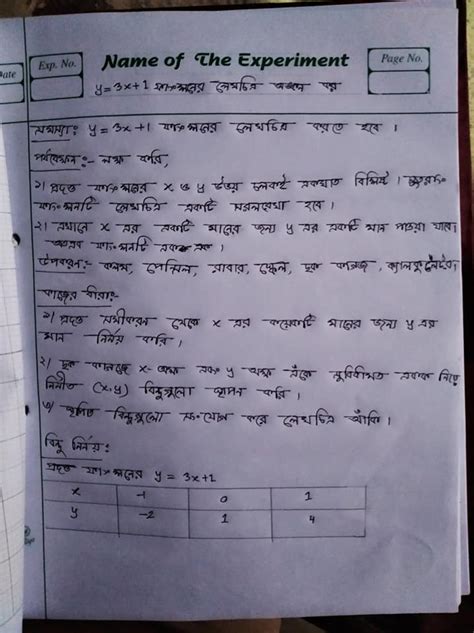 Date
Exp. No.
Name of The Experiment
Page No.
y = 3x+1 ফাংশনের লেখচিত্র অঙ্কন কর
সমস্যা: y = 3x+1 ফাংশনের লেখচিত্র করতে হবে ।
পর্যবেক্ষণ:- লক্ষ্য করি,
১। প্রদত্ত ফাংশনের x ও y উভয় চলকই একঘাত বিশিষ্ট । সুতরাং
ফাংশনটি লেখচিত্র একটি সরলরেখা হবে ।
২। এখানে x এর একটি মানের জন্য y এর একটি মান পাওয়া যাবে।
অতএব ফাংশনটি এক-এক ।
উপকরণ:- কলম, পেন্সিল, রাবার, স্কেল, ছক কাগজ, ক্যালকুলেটর।
কাজের ধারা:-
১। প্রদত্ত সমীকরণ থেকে x এর কয়েকটি মানের জন্য y এর
মান নির্ণয় করি ।
২। ছক কাগজে x-অক্ষ এবং y অক্ষ এঁকে সুবিধামত একক নিয়ে
নির্ণীত (x,y) বিন্দুগুলো স্থাপন করি ।
৩। স্থাপিত বিন্দুগুলো সংযোগ করে লেখচিত্র আঁকি ।
বিন্দু নির্ণয়:
প্রদত্ত ফাংশনের y = 3x+1
x -1 0 1
y -2 1 4